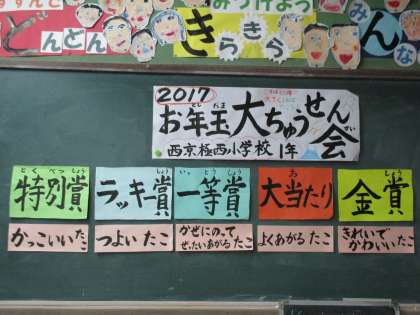 どんどん
きらきら
みんな
2017
お年玉大ちゅうせん会
西京極西小学校 1年
特別賞
ラッキー賞
一等賞
大当たり
金賞
かっこいいたこ
つよい たこ
かぜにのって
ぜったいあがるたこ
よくあがる たこ
きれいで
かわいいたこ